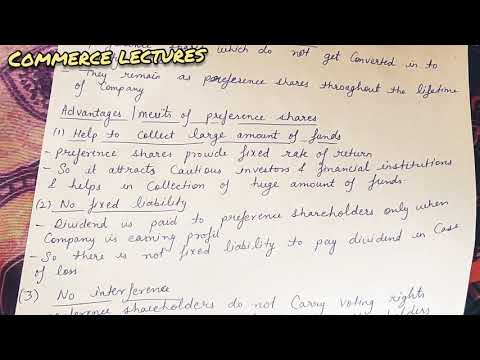 COMMERCE LECTURES
which do not get Converted in to
- They remain as preference shares throughout the lifetime
of Company
Advantages / merits of preference shares
(1) Help to collect large amount of funds
- preference shares provide fixed rate of return
- So it attracts Cautious investors & financial institutions
& helps in Collection of huge amount of funds.
(2) No fixed liability
- Dividend is paid to preference shareholders only when
Company is earning profit
- So there is not fixed liability to pay dividend in Case
of loss
(3) No interference
shareholders do not Carry voting rights